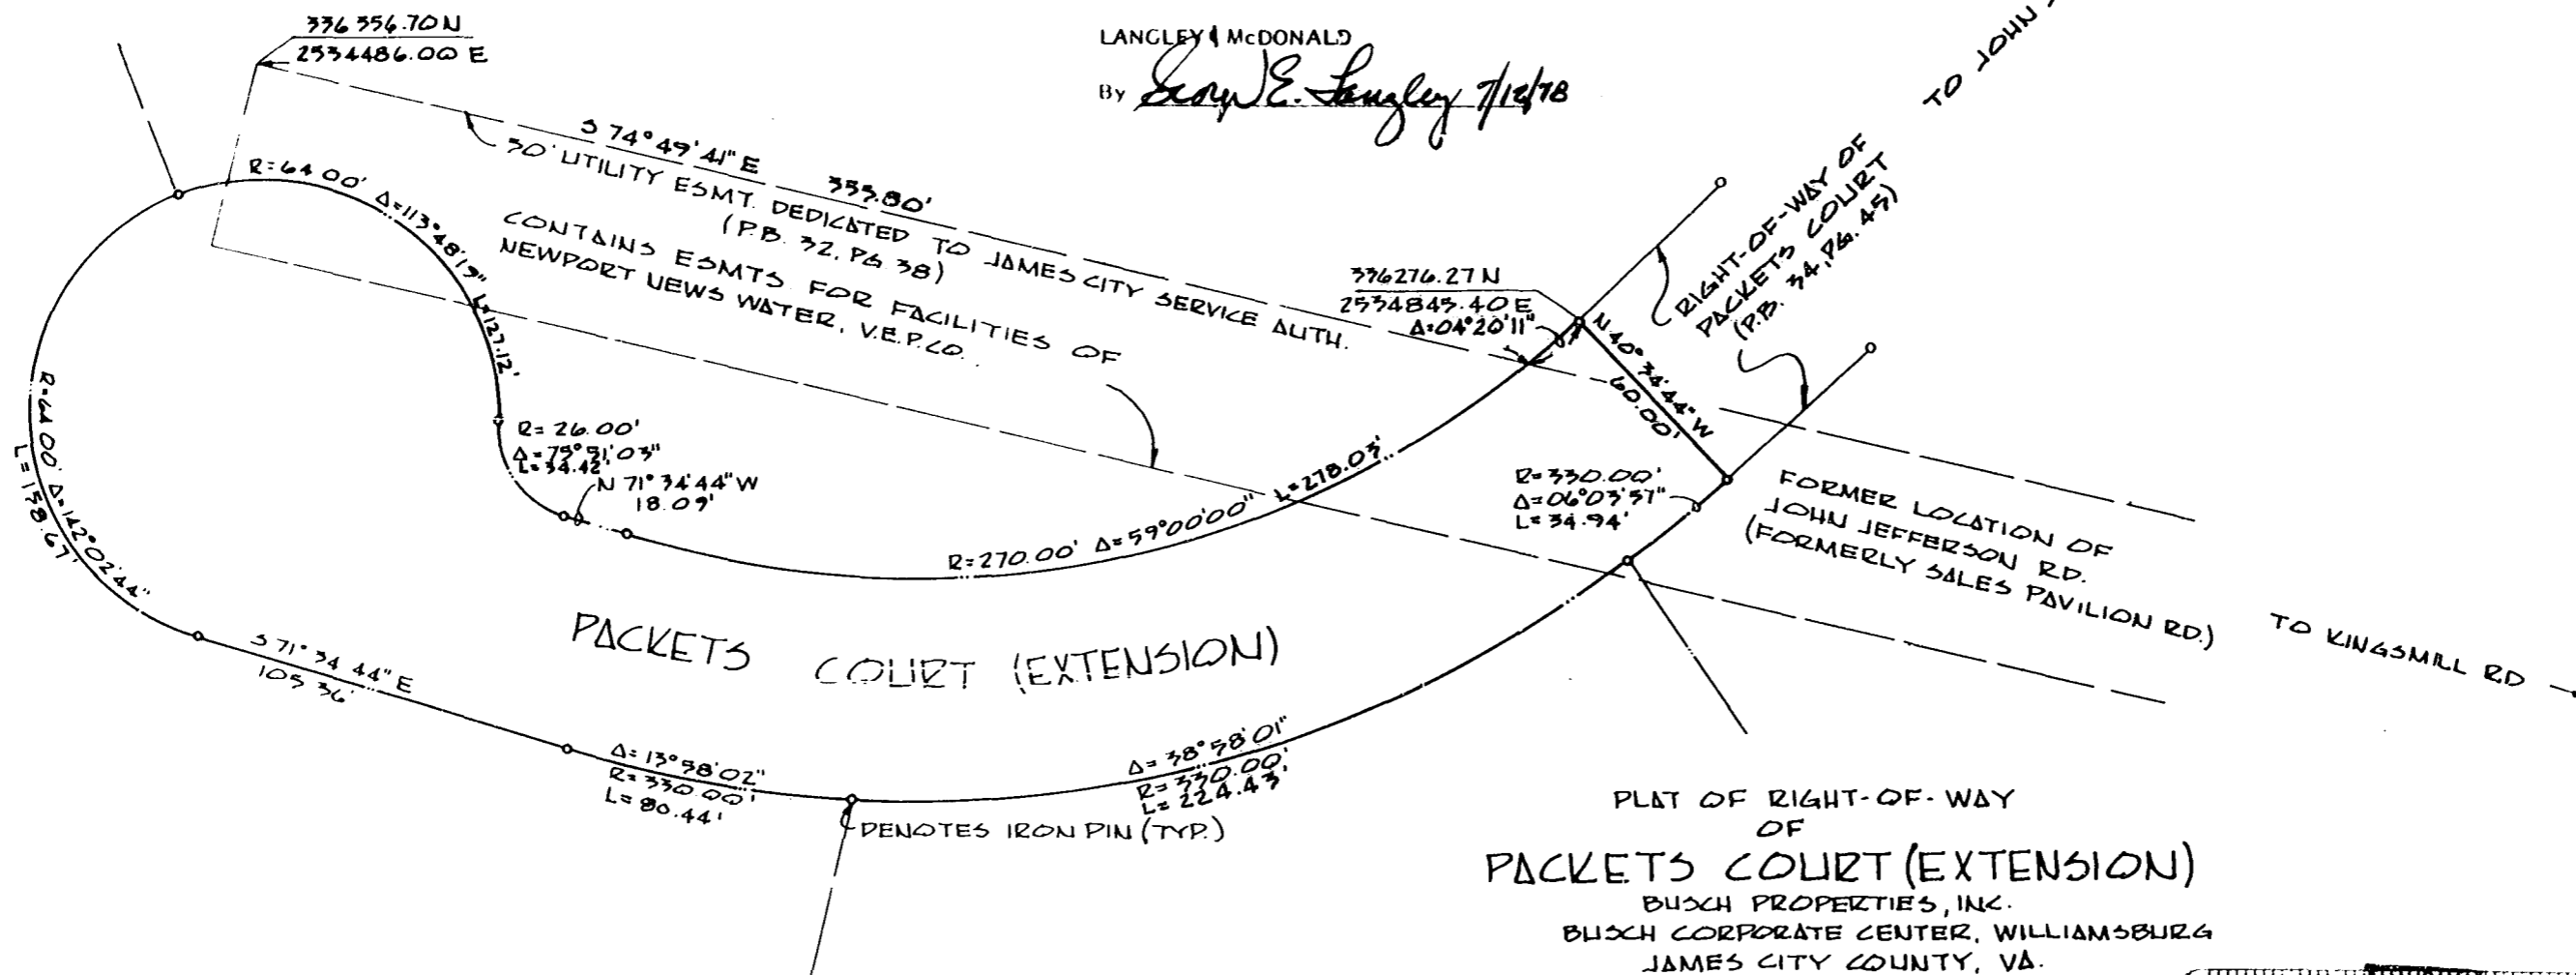 336 356.70 N
2534486.00 E
LANGLEY & McDONALD
By George E. Langley 7/12/78
TO JOHN
S 74° 49' 41" E 353.80'
30' UTILITY ESMT. DEDICATED TO JAMES CITY SERVICE AUTH.
(P.B. 32, PG 38)
CONTAINS ESMTS FOR FACILITIES OF
NEWPORT NEWS WATER, V.E.P.CO.
R=64 00' Δ=113°48'19" L=127.12'
RIGHT-OF-WAY OF
PACKETS COURT
(P.B. 34, PG. 45)
336276.27 N
2534845.40 E
Δ=04°20'11"
N 40° 34' 44" W
60.00'
R=64 00' Δ=142°02'44"
L=158.67'
R= 26.00'
Δ=75°51'03"
L=34.42'
N 71° 34' 44" W
18.09'
R=270.00' Δ=59°00'00" L=278.03'
R=330.00'
Δ=06°03'57"
L=34.94'
FORMER LOCATION OF
JOHN JEFFERSON RD.
(FORMERLY SALES PAVILION RD.)
TO KINGSMILL RD
S 71° 34 44" E
105 36'
PACKETS COURT (EXTENSION)
Δ= 13°58'02"
R= 330.00'
L= 80.44'
Δ= 38°58'01"
R= 330.00'
L= 224.43'
DENOTES IRON PIN (TYP.)
PLAT OF RIGHT-OF-WAY
OF
PACKETS COURT (EXTENSION)
BUSCH PROPERTIES, INC.
BUSCH CORPORATE CENTER, WILLIAMSBURG
JAMES CITY COUNTY, VA.